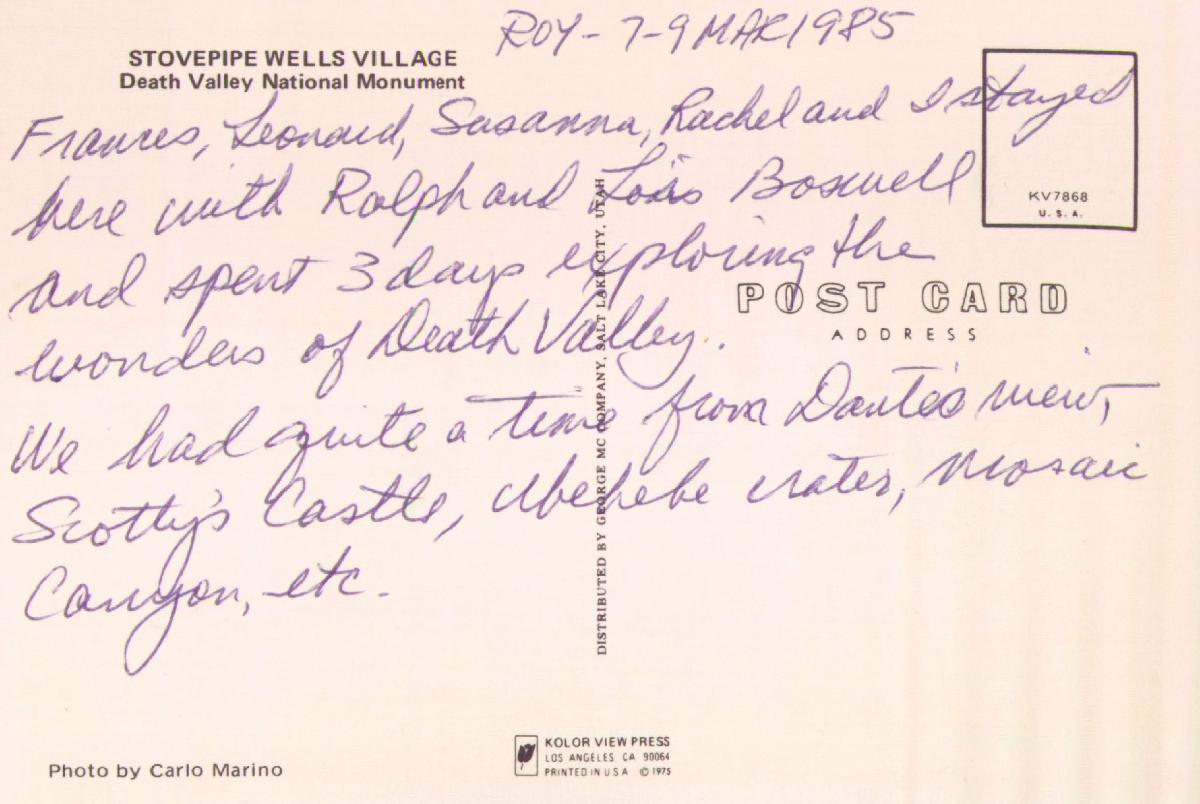 ROY - 7-9 MAR 1985
STOVEPIPE WELLS VILLAGE
Death Valley National Monument
Frances, Leonard, Susanna, Rachel and I stayed
here with Ralph and Lois Boswell
and spent 3 days exploring the
wonders of Death Valley.
We had quite a time from Dante's view,
Scotty's Castle, Ubehebe crater, Mosaic
Canyon, etc.
KV7868
U. S. A.
POST CARD
ADDRESS
DISTRIBUTED BY GEORGE MC COMPANY, SALT LAKE CITY, UTAH
Photo by Carlo Marino
KOLOR VIEW PRESS
LOS ANGELES, CA 90064
PRINTED IN U S A © 1975